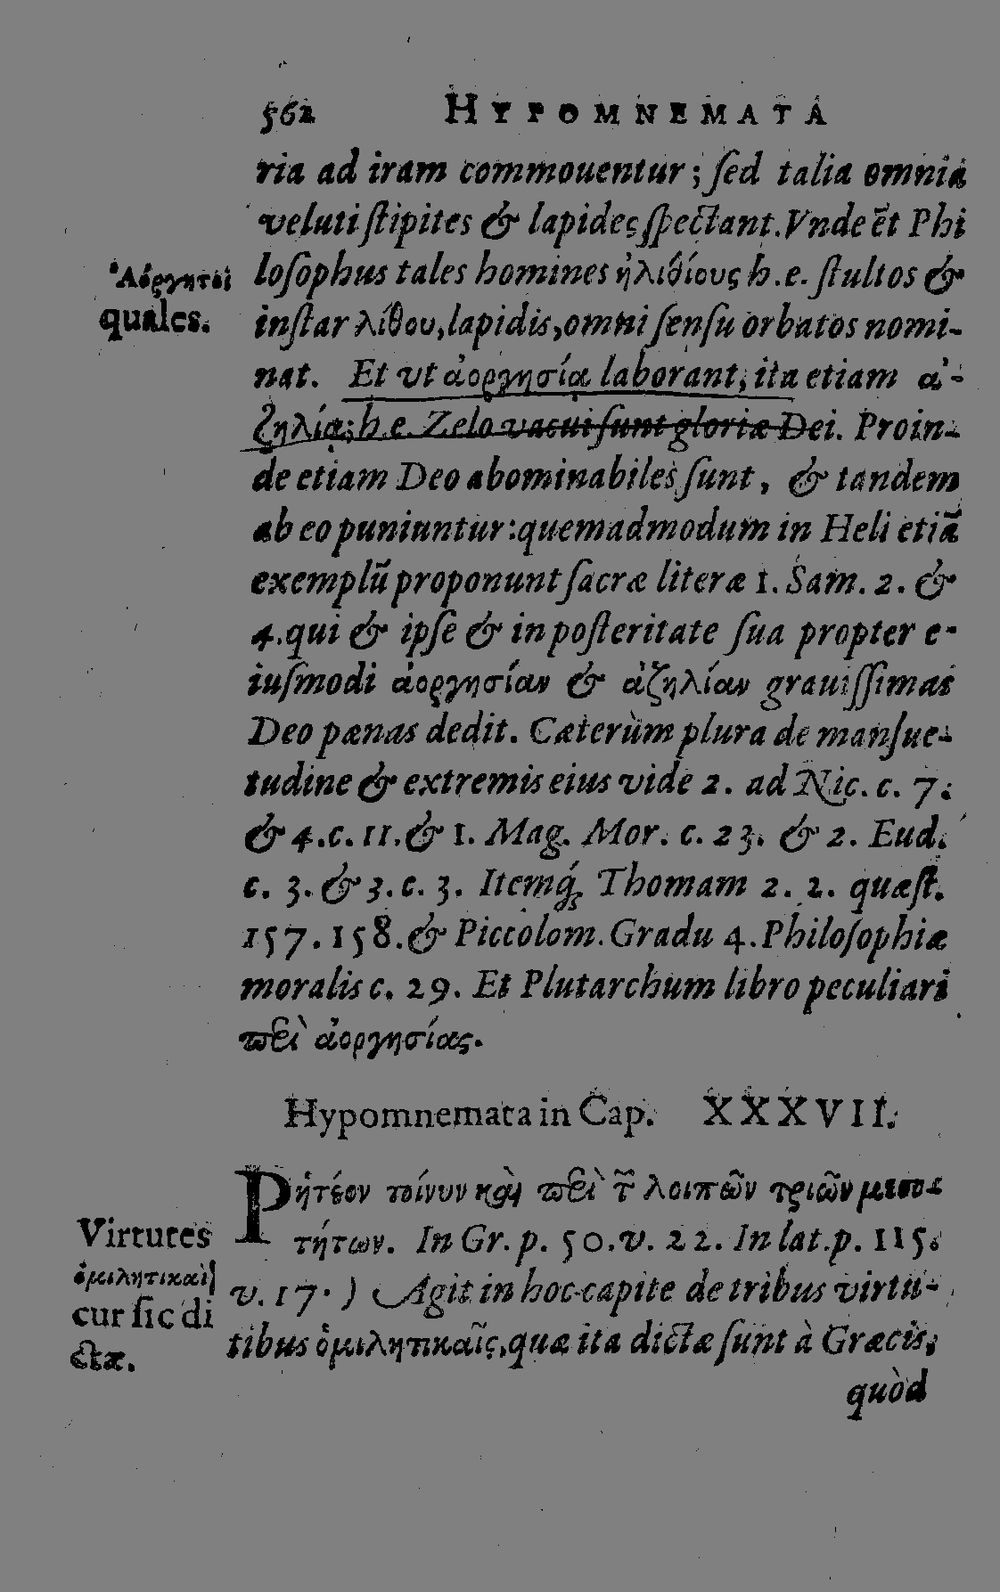 562 HYPOMNEMATA
ria ad iram commouentur; ſed talia omnia
veluti ſtipites & lapides ſpectant. Vnde ēt Phi
loſophus tales homines ἠλιθίους h.e. ſtultos &
Ἀόργητοι
quales.
inſtar λίθου, lapidis, omni ſenſu orbatos nomi-
nat. Et vt ἀοργησία laborant, ita etiam ἀ-
ζηλίᾳ; h.e. Zelo vacui ſunt gloriæ Dei. Proin-
de etiam Deo abominabiles ſunt, & tandem
ab eo puniuntur: quemadmodum in Heli etiã
exemplũ proponunt ſacræ literæ 1. Sam. 2. &
4. qui & ipſe & in poſteritate ſua propter e-
iuſmodi ἀοργησίαν & ἀζηλίαν grauiſſimas
Deo pænas dedit. Cæterùm plura de manſue-
tudine & extremis eius vide 2. ad Nic. c. 7.
& 4. c. 11. & 1. Mag. Mor. c. 23. & 2. Eud.
c. 3. & 3. c. 3. Itemq́; Thomam 2. 2. quæſt.
157. 158. & Piccolom. Gradu 4. Philoſophiæ
moralis c. 29. Et Plutarchum libro peculiari
περὶ ἀοργησίας.
Hypomnemata in Cap. XXXVII.
Ρητέον τοίνυν καὶ περὶ τ̃ λοιπῶν τριῶν μεσο-
τήτων. In Gr. p. 50. v. 22. In lat. p. 115.
v. 17. ) Agit in hoc capite de tribus virtu-
tibus ὁμιλητικαῖς, quæ ita dictæ ſunt à Græcis,
Virtutes
ὁμιλητικαὶ
cur ſic di
ctæ.
quòd